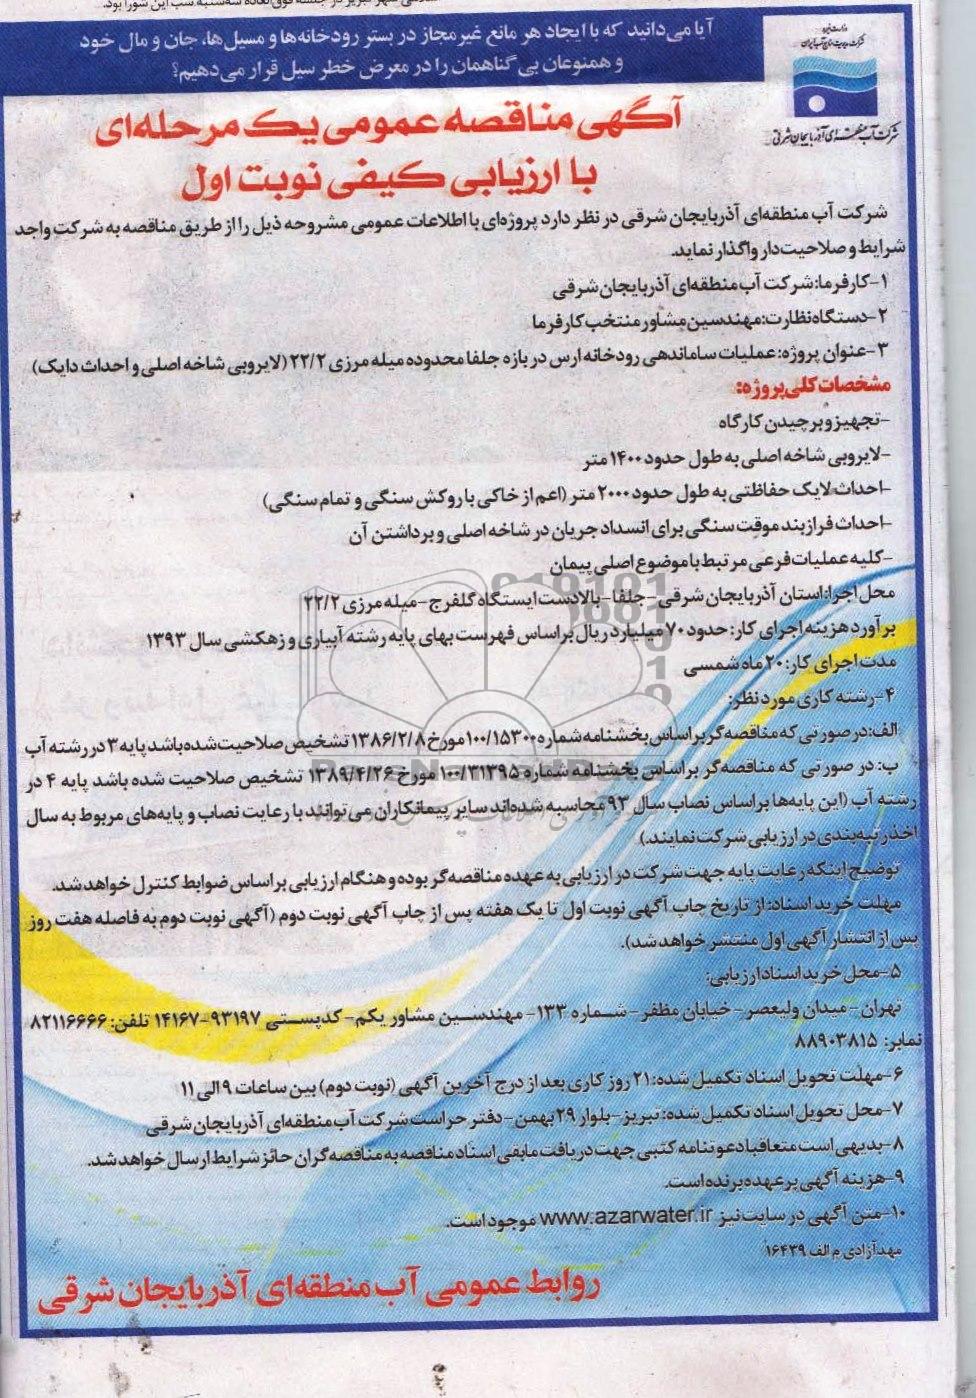 آیا می‌دانید که با ایجاد هر مانع غیرمجاز در بستر رودخانه‌ها و مسیل‌ها، جان و مال خود
و همنوعان بی‌گناهمان را در معرض خطر سیل قرار می‌دهیم؟
وزارت نیرو
شرکت مدیریت منابع آب ایران
شرکت آب منطقه‌ای آذربایجان شرقی
آگهی مناقصه عمومی یک مرحله‌ای
با ارزیابی کیفی نوبت اول
شرکت آب منطقه‌ای آذربایجان شرقی در نظر دارد پروژه‌ای با اطلاعات عمومی مشروحه ذیل را از طریق مناقصه به شرکت واجد
شرایط و صلاحیت‌دار واگذار نماید.
۱-کارفرما: شرکت آب منطقه‌ای آذربایجان شرقی
۲-دستگاه نظارت: مهندسین مشاور منتخب کارفرما
۳-عنوان پروژه: عملیات ساماندهی رودخانه ارس در بازه جلفا محدوده میله مرزی ۲۲/۲ (لایروبی شاخه اصلی و احداث دایک)
مشخصات کلی پروژه:
-تجهیز و برچیدن کارگاه
-لایروبی شاخه اصلی به طول حدود ۱۴۰۰ متر
-احداث لایک حفاظتی به طول حدود ۲۰۰۰ متر (اعم از خاکی با روکش سنگی و تمام سنگی)
-احداث فرازبند موقت سنگی برای انسداد جریان در شاخه اصلی و برداشتن آن
-کلیه عملیات فرعی مرتبط با موضوع اصلی پیمان
محل اجرا: استان آذربایجان شرقی-جلفا-بالادست ایستگاه گلفرج-میله مرزی ۲۲/۲
برآورد هزینه اجرای کار: حدود ۷۰ میلیارد ریال براساس فهرست بهای پایه رشته آبیاری و زهکشی سال ۱۳۹۳
مدت اجرای کار: ۲۰ ماه شمسی
۴-رشته کاری مورد نظر:
الف: در صورتی که مناقصه‌گر براساس بخشنامه شماره ۱۰۰/۱۵۳۰۰ مورخ ۱۳۸۶/۲/۸ تشخیص صلاحیت شده باشد پایه ۳ در رشته آب
ب: در صورتی که مناقصه‌گر براساس بخشنامه شماره ۱۰۰/۳۱۳۹۵ مورخ ۱۳۸۹/۴/۲۶ تشخیص صلاحیت شده باشد پایه ۴ در
رشته آب (این پایه‌ها براساس نصاب سال ۹۳ محاسبه شده‌اند سایر پیمانکاران می‌توانند با رعایت نصاب و پایه‌های مربوط به سال
اخذ رتبه‌بندی در ارزیابی شرکت نمایند.)
توضیح اینکه رعایت پایه جهت شرکت در ارزیابی به عهده مناقصه‌گر بوده و هنگام ارزیابی براساس ضوابط کنترل خواهد شد.
مهلت خرید اسناد: از تاریخ چاپ آگهی نوبت اول تا یک هفته پس از چاپ آگهی نوبت دوم (آگهی نوبت دوم به فاصله هفت روز
پس از انتشار آگهی اول منتشر خواهد شد).
۵-محل خرید اسناد ارزیابی:
تهران-میدان ولیعصر-خیابان مظفر-شماره ۱۳۳-مهندسین مشاور یکم-کدپستی ۹۳۱۹۷-۱۴۱۶۷ تلفن: ۸۲۱۱۶۶۶۶
نمابر: ۸۸۹۰۳۸۱۵
۶-مهلت تحویل اسناد تکمیل شده: ۲۱ روز کاری بعد از درج آخرین آگهی (نوبت دوم) بین ساعات ۹ الی ۱۱
۷-محل تحویل اسناد تکمیل شده: تبریز-بلوار ۲۹ بهمن-دفتر حراست شرکت آب منطقه‌ای آذربایجان شرقی
۸-بدیهی است متعاقبا دعوتنامه کتبی جهت دریافت مابقی اسناد مناقصه به مناقصه‌گران حائز شرایط ارسال خواهد شد.
۹-هزینه آگهی بر عهده برنده است.
۱۰-متن آگهی در سایت نیز www.azarwater.ir موجود است.
مهدآزادی م الف ۱۶۴۳۹
روابط عمومی آب منطقه‌ای آذربایجان شرقی